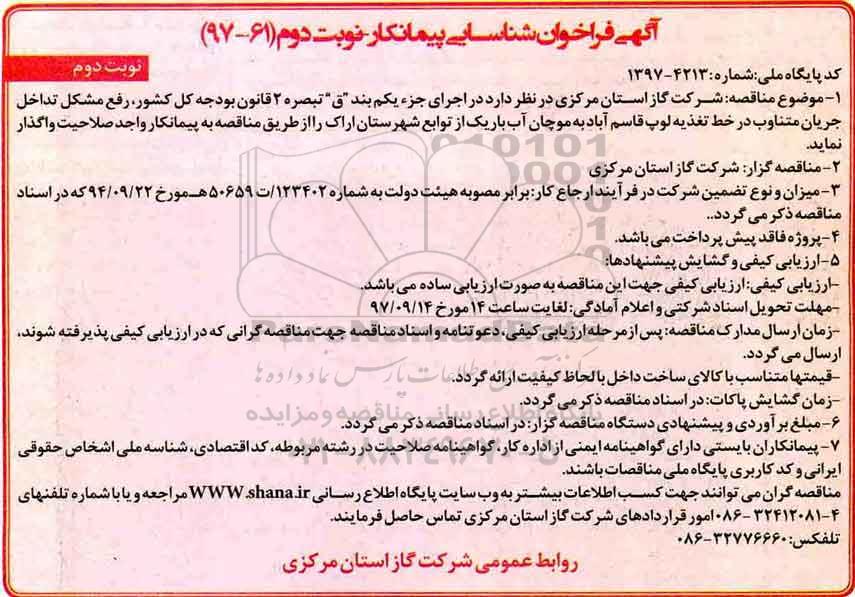 آگهی فراخوان شناسایی پیمانکار-نوبت دوم (۶۱-۹۷)
نوبت دوم
کد پایگاه ملی:شماره: ۴۲۱۳-۱۳۹۷
۱-موضوع مناقصه: شرکت گاز استان مرکزی در نظر دارد در اجرای جزء یکم بند "ق" تبصره ۲ قانون بودجه کل کشور، رفع مشکل تداخل
جریان متناوب در خط تغذیه لوپ قاسم آباد به موچان آب باریک از توابع شهرستان اراک را از طریق مناقصه به پیمانکار واجد صلاحیت واگذار
نماید.
۲-مناقصه گزار: شرکت گاز استان مرکزی
۳-میزان و نوع تضمین شرکت در فرآیند ارجاع کار: برابر مصوبه هیئت دولت به شماره ۱۲۳۴۰۲/ت ۵۰۶۵۹ هـ مورخ ۹۴/۰۹/۲۲ که در اسناد
مناقصه ذکر می گردد..
۴-پروژه فاقد پیش پرداخت می باشد.
۵-ارزیابی کیفی و گشایش پیشنهادها:
-ارزیابی کیفی: ارزیابی کیفی جهت این مناقصه به صورت ارزیابی ساده می باشد.
-مهلت تحویل اسناد شرکتی و اعلام آمادگی: لغایت ساعت ۱۴ مورخ ۹۷/۰۹/۱۴
-زمان ارسال مدارک مناقصه: پس از مرحله ارزیابی کیفی، دعوتنامه و اسناد مناقصه جهت مناقصه گرانی که در ارزیابی کیفی پذیرفته شوند،
ارسال می گردد.
-قیمتها متناسب با کالای ساخت داخل با لحاظ کیفیت ارائه گردد.
-زمان گشایش پاکات: در اسناد مناقصه ذکر می گردد.
۶-مبلغ برآوردی و پیشنهادی دستگاه مناقصه گزار: در اسناد مناقصه ذکر می گردد.
۷- پیمانکاران بایستی دارای گواهینامه ایمنی از اداره کار، گواهینامه صلاحیت در رشته مربوطه، کد اقتصادی، شناسه ملی اشخاص حقوقی
ایرانی و کد کاربری پایگاه ملی مناقصات باشند.
مناقصه گران می توانند جهت کسب اطلاعات بیشتر به وب سایت پایگاه اطلاع رسانی WWW.shana.ir مراجعه و یا با شماره تلفنهای
۴-۳۲۴۱۲۰۸۱-۰۸۶ امور قراردادهای شرکت گاز استان مرکزی تماس حاصل فرمایند.
تلفکس: ۳۲۷۷۶۶۶۰-۰۸۶
روابط عمومی شرکت گاز استان مرکزی
ParsNamadData
پایگاه اطلاع رسانی مناقصه و مزایده